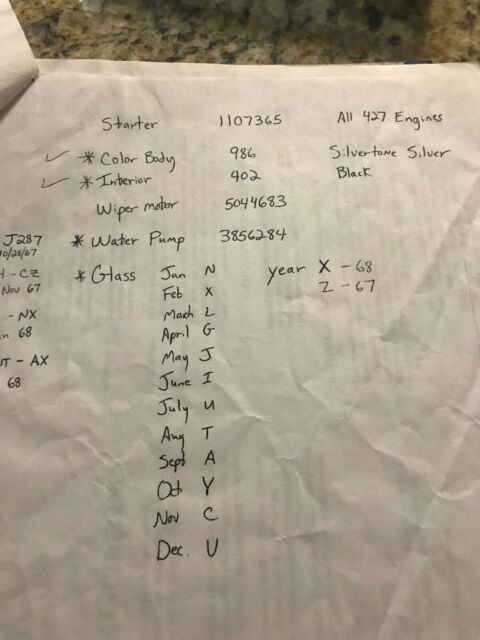 Starter 1107365 All 427 Engines
✓ * Color Body 986 Silvertone Silver
✓ * Interior 402 Black
Wiper motor 5044683
J287 * Water Pump 3856284
10/28/67
- CZ * Glass Jan N year X - 68
Nov 67 Feb X Z - 67
- NX March L
68 April G
- AX May J
68 June I
July U
Aug T
Sept A
Oct Y
Nov C
Dec. U